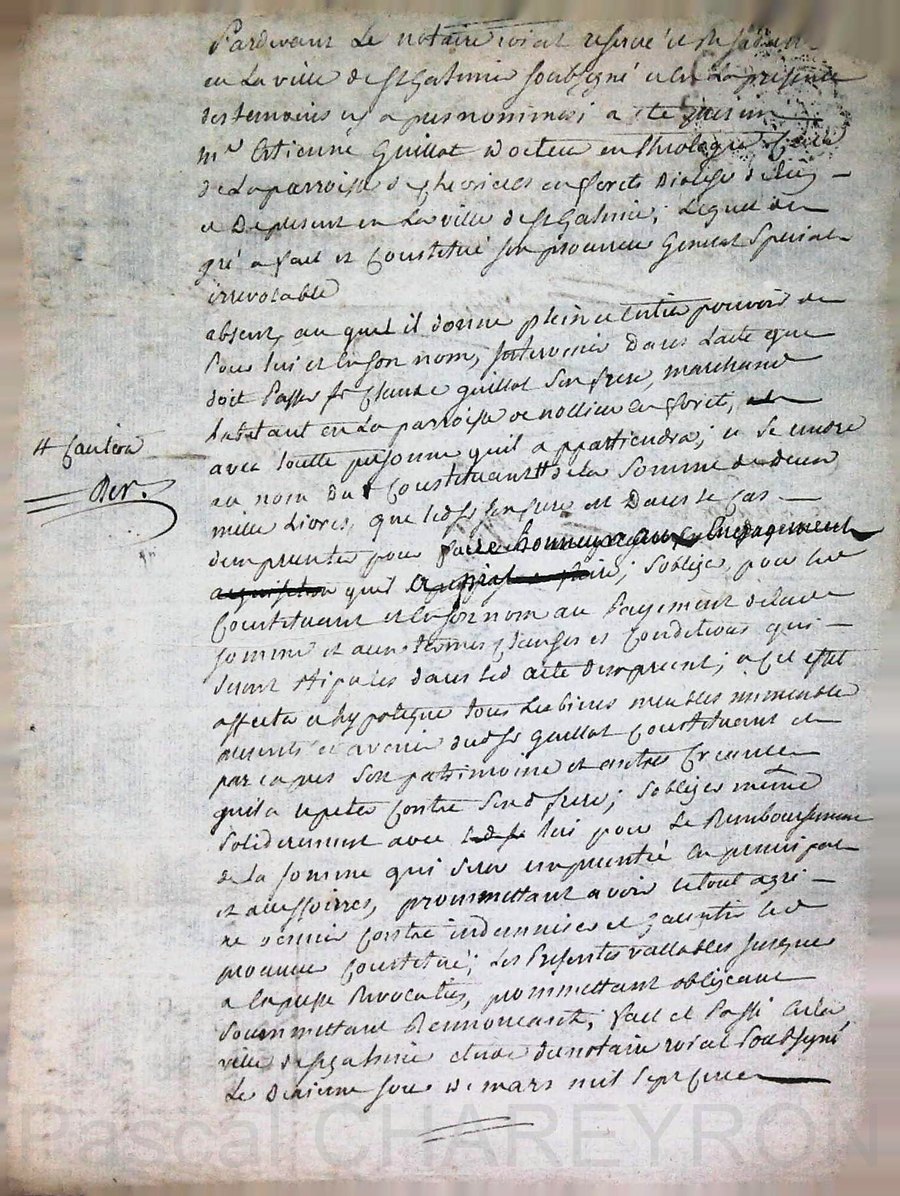 Pardevant Le notaire roial reservé et
en La ville de St Galmier soubsigné et en La presence
des temoins cy apres nommés a eté present
mre Etienne Guillot Docteur en theologie Curé
de La parroisse de en forets Diocese de
et De present en La ville de St Galmier; Lequel de
gré a fait et Constitué son procureur General Special
irrevocable
absent, au quel il donne plein et entier pouvoir de
Pour lui et en son nom, Intervenir Dans Lacte que
doit Passer sr Claude guillot son frere, marchand
habitant en La parroisse de en foret,
avec toutte personne quil appartiendra; et se rendre
au nom du Constituant # de la somme de deux
mille Livres, que led sr son frere est Dans le cas
demprunter pour faire honneur aux Engagements
acquisition quil faire; s'obliger pour led
Constituant et en son nom au Payement de lad
somme et aux termes Charges et Conditions qui
seront stipulés dans led acte demprunt; a Cet effet
affecter et hypotequer tous Les biens meubles immeubles
presents et avenir dud sr guillot Constituant et
par exprès son patrimoine et autres Creances
quil a repeter Contre Sond frere; s'obliger même
Soliderement avec led sr lui pour Le Remboursement
de La somme qui sera empruntée en principal
et accessoires, prommettant avoir le tout agré
ne venir Contre indemniser et garentir led
procureur Constitué; Les Presentes vallables jusques
a Expresse Revocation, prommettant obligeant
Soummettant Rennonceant, fait et Passé en la
ville de St Galmier etude du notaire roial Soubsigné
Le Dixieme jour de mars mil Sept Cent
# Caution
Pascal CHAREYRON